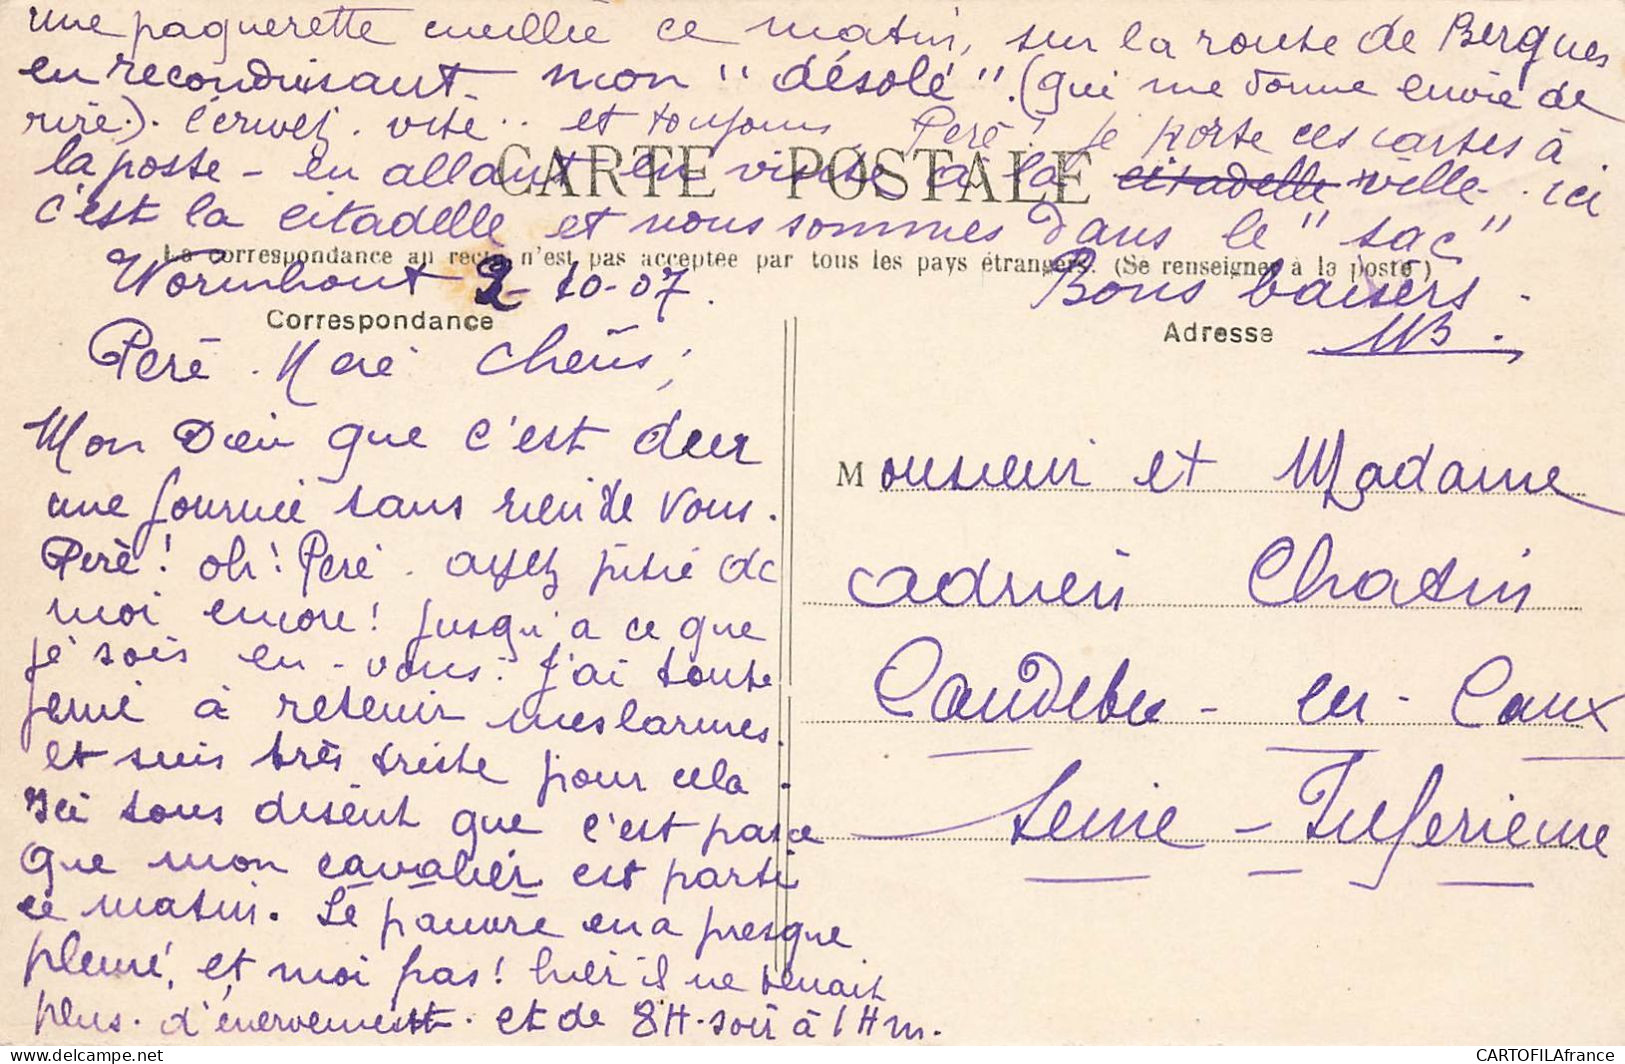 une paquerette cueillie ce matin, sur la route de Bergues
en reconduisant mon "désolé". (qui me donne envie de
rire). écrivez. vite.. et toujours, Père! je porte ces cartes à
la poste - en allant en visite à la citadelle ville. ici
c'est la citadelle et nous sommes dans le "sac"
CARTE POSTALE
La correspondance au recto n'est pas acceptée par tous les pays étrangers. (Se renseigner à la poste)
Wormhout 2-10-07.
Bons baisers.
MB.
Correspondance
Adresse
Père. Mère chéris,
Mon Dieu que c'est dur
une journée sans rien de vous.
Père! oh! Père. ayez pitié de
moi encore! jusqu'à ce que
je sois en-vous. J'ai toute
peine à retenir mes larmes.
et suis très triste pour cela.
Ici tous disent que c'est parce
que mon cavalier est parti
ce matin. Le pauvre en a presque
pleuré, et moi pas! hier il ne tenait
plus. d'énervement. et de 8H. soir à 1 H m.
Monsieur et Madame
Adrien Chatin
Caudebec-en-Caux
Seine-Inférieure
CARTOFILAfrance